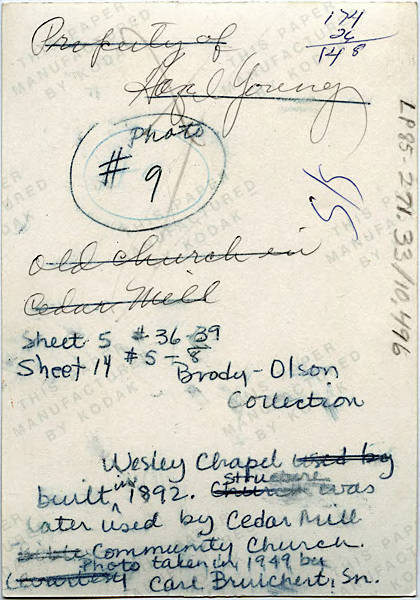 Property of
Hazel Young
174
26
148
Photo
# 9
55
LP85-271.33/10,496
old church in
Cedar Mill
Sheet 5 #36-39
Sheet 14 #5-8
Brody-Olson
Collection
Wesley Chapel used by
built in 1892. Church structure was
later used by Cedar Mill
Bible Community Church.
Photo taken in 1949 by
(courtesy Carl Bruichert, Sr.
THIS PAPER
MANUFACTURED
BY KODAK